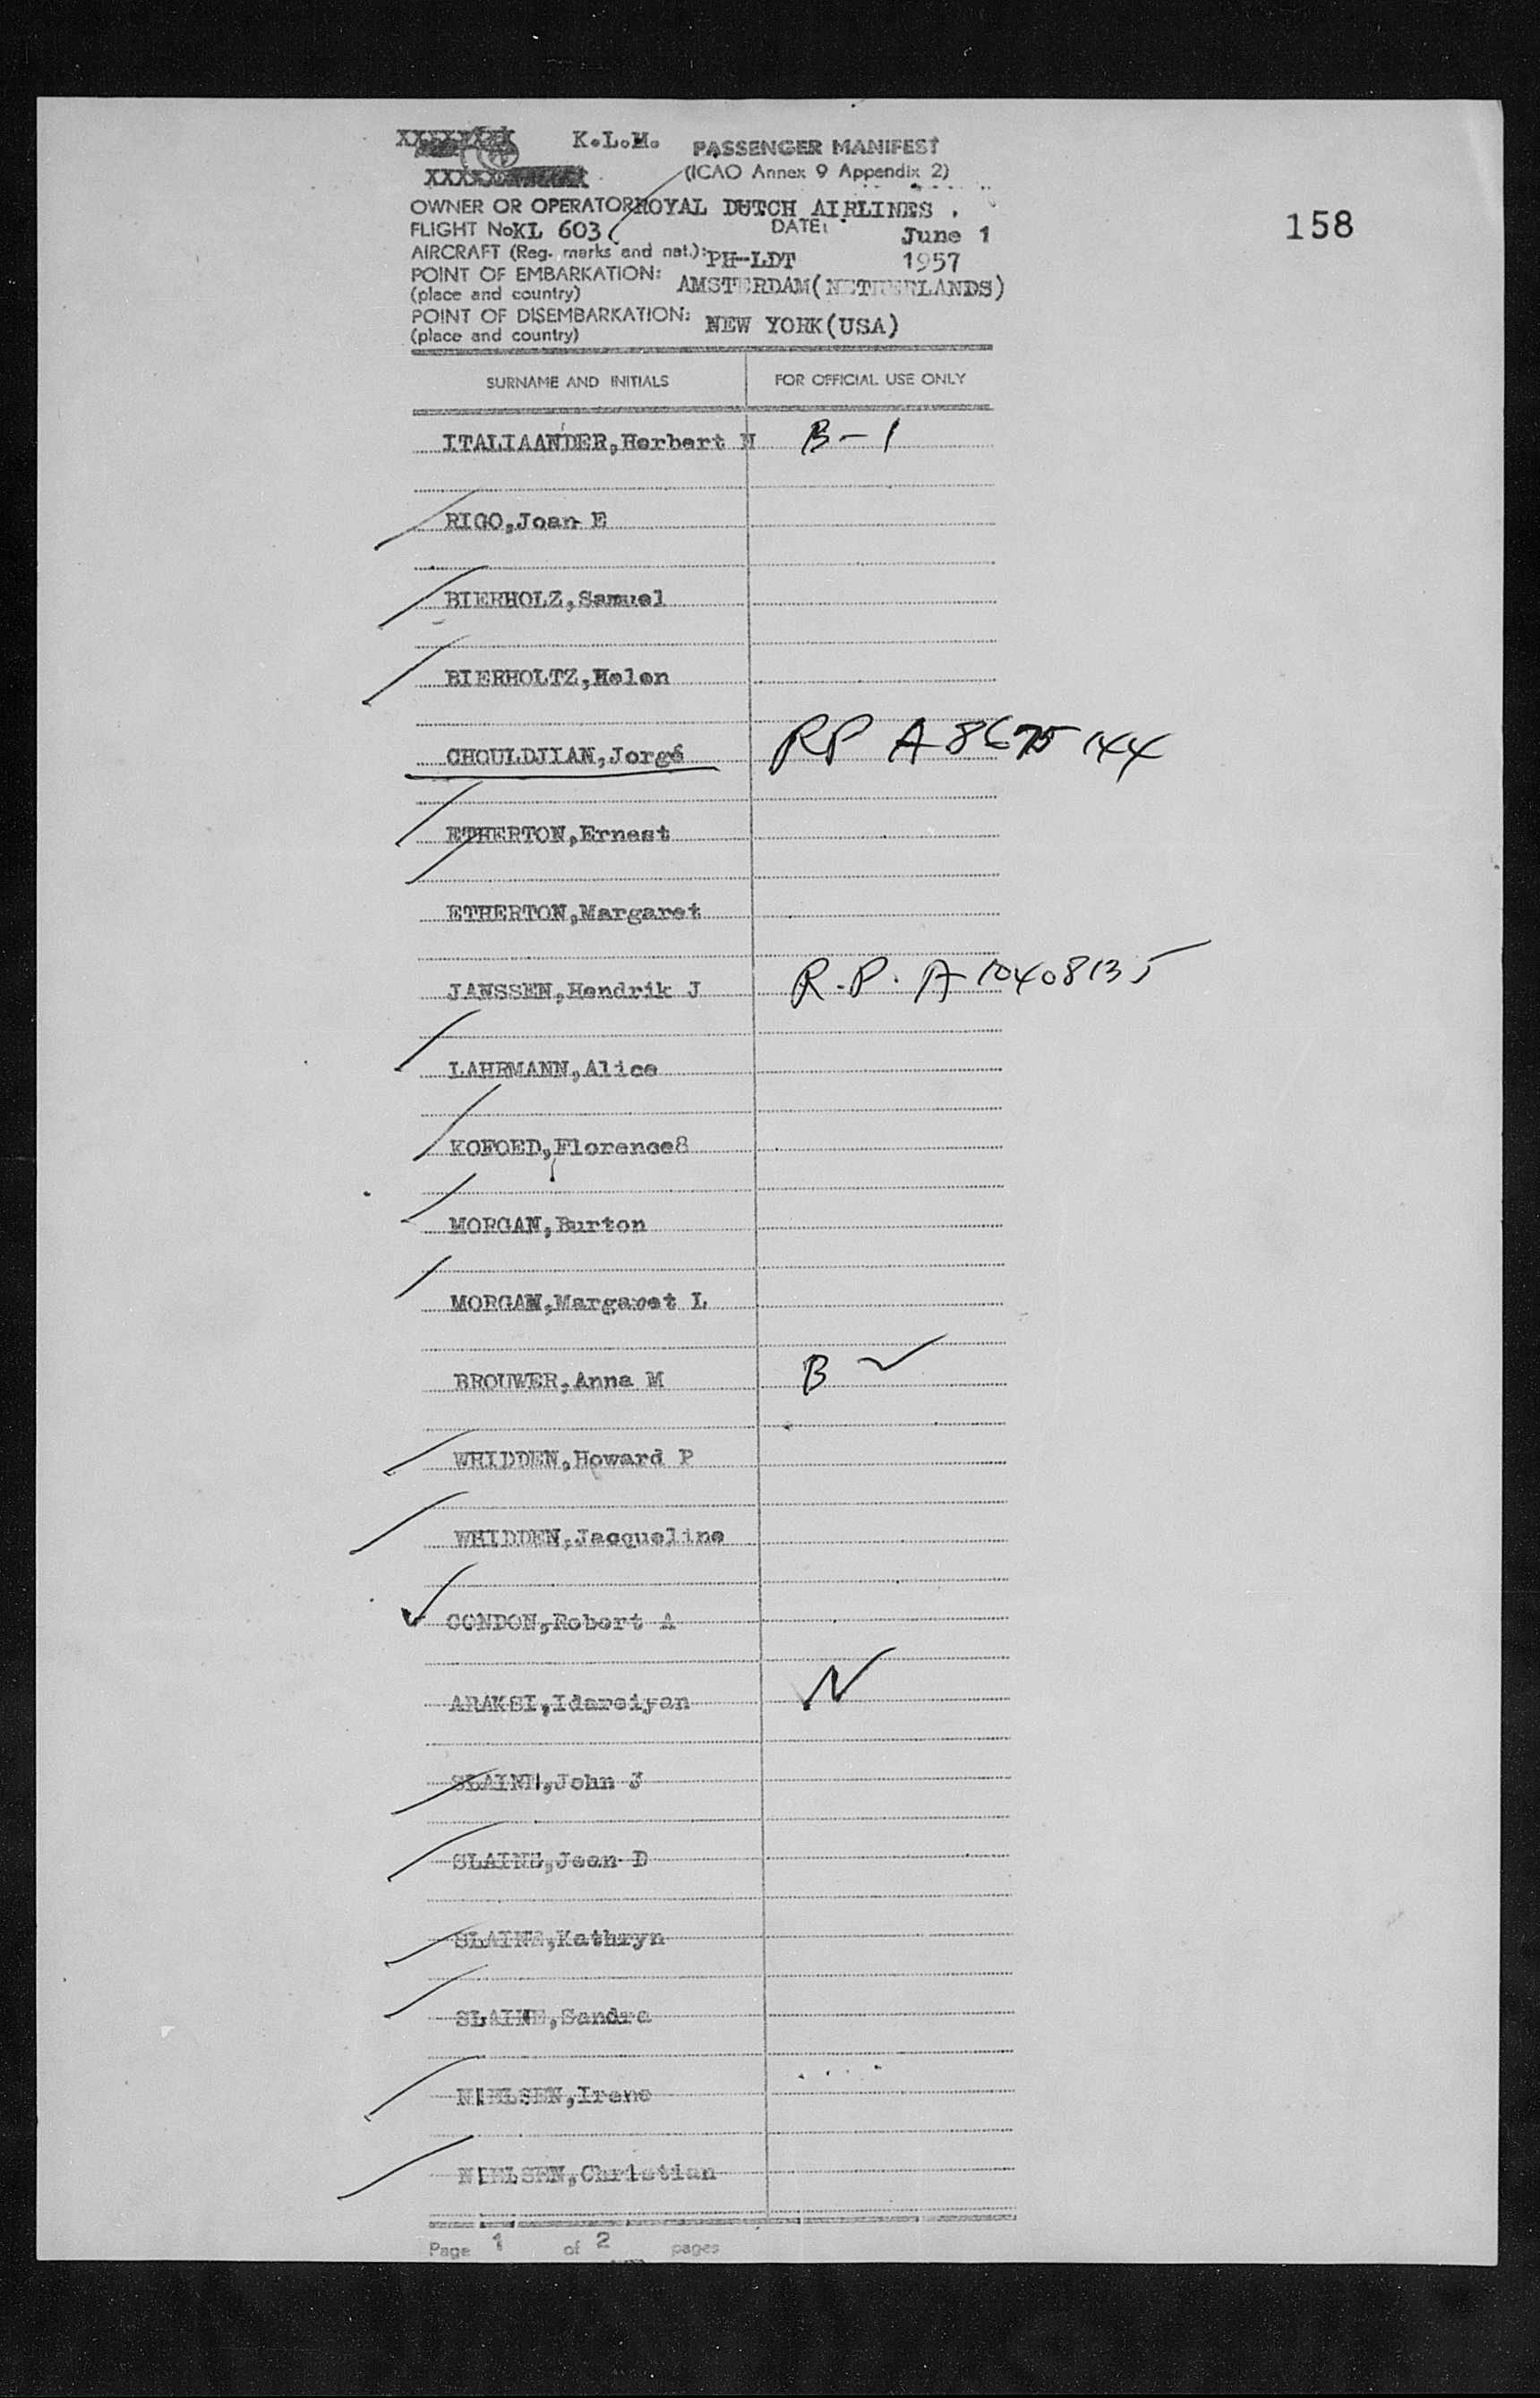 K.L.M. PASSENGER MANIFEST
(ICAO Annex 9 Appendix 2)
OWNER OR OPERATOR: ROYAL DUTCH AIRLINES .
158
FLIGHT No KL 603 DATE: June 1
AIRCRAFT (Reg. marks and nat.): PH-LDT 1957
POINT OF EMBARKATION: AMSTERDAM(NETHERLANDS)
(place and country)
POINT OF DISEMBARKATION: NEW YORK(USA)
(place and country)
SURNAME AND INITIALS FOR OFFICIAL USE ONLY
ITALIAANDER,Herbert N B-1
RIGO,Joan E
BIERHOLZ,Samuel
BIERHOLTZ,Helen
CHOULDJIAN,Jorgé RP A 8675144
ETHERTON,Ernest
ETHERTON,Margaret
JANSSEN,Hendrik J R.P. A 10408135
LAHRMANN,Alice
KOFOED,Florence8
MORGAN,Burton
MORGAN,Margaret L
BROUWER,Anna M B
WHIDDEN,Howard P
WHIDDEN,Jacqueline
CONDON,Robert A
ARAKSI,Idareiyan N
SLAINE,John J
SLAINE,Jean D
SLAINE,Kathryn
SLAINE,Sandra
NIELSEN,Irene
NIELSEN,Christian
Page 1 of 2 pages